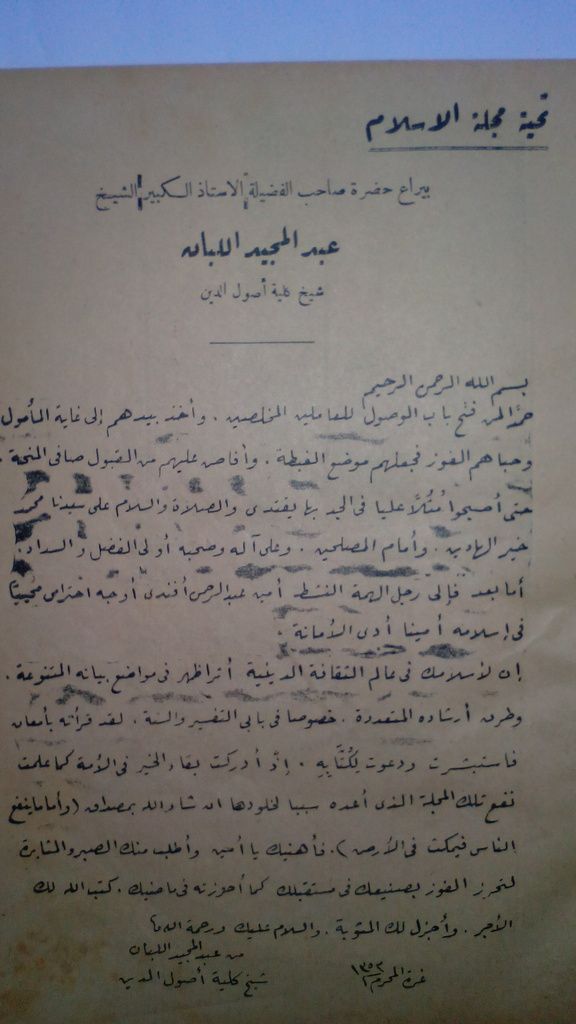 تحية مجلة الاسلام
بيراع حضرة صاحب الفضيلة الاستاذ الكبير الشيخ
عبد المجيد اللبان
شيخ كلية أصول الدين
بسم الله الرحمن الرحيم
حمدًا لمن فتح باب الوصول للعاملين المخلصين . وأخذ بيدهم إلى غاية المأمول
وحباهم الفوز فجعلهم موضع الغبطة . وأفاض عليهم من القبول صافى المنحة .
حتى أصبحوا مُثُلاً عليا فى الجد بها يقتدى والصلاة والسلام على سيدنا محمد
خير الهادين . وأمام المصلحين . وعلى آله وصحبه أولى الفضل والسداد .
أما بعد فإلى رجل الهمة النشط أمين عبد الرحمن أفندى أوجه احترامى محييًا
فى إسلامه أمينا أدى الأمانة .
إن لأسلامك فى عالم الثقافة الدينية أثرا ظهر فى مواضع بيانه المتنوعة .
وطرق أرشاده المتعددة . خصوصا فى بابى التفسير والسنة . لقد قرأته بأمعان
فاستبشرت ودعوت لِكُتَّابِهِ . إذ أدركت بقاء الخير فى الأمة كما علمت
نفع تلك المجلة الذى أعده سببا لخلودها ان شاء الله بمصداق (وأما ما ينفع
الناس فيمكث فى الأرض ) . فأهنيك يا أمين وأطلب منك الصبر والمثابرة
لتحرز الفوز بصنيعك فى مستقبلك كما أحرزته فى ماضيك . كتب الله لك
الأجر . وأجزل لك المثوبة . والسلام عليك ورحمة الله
من عبد المجيد اللبان
غرة المحرم ١٣٥٣ شيخ كلية أصول الدين